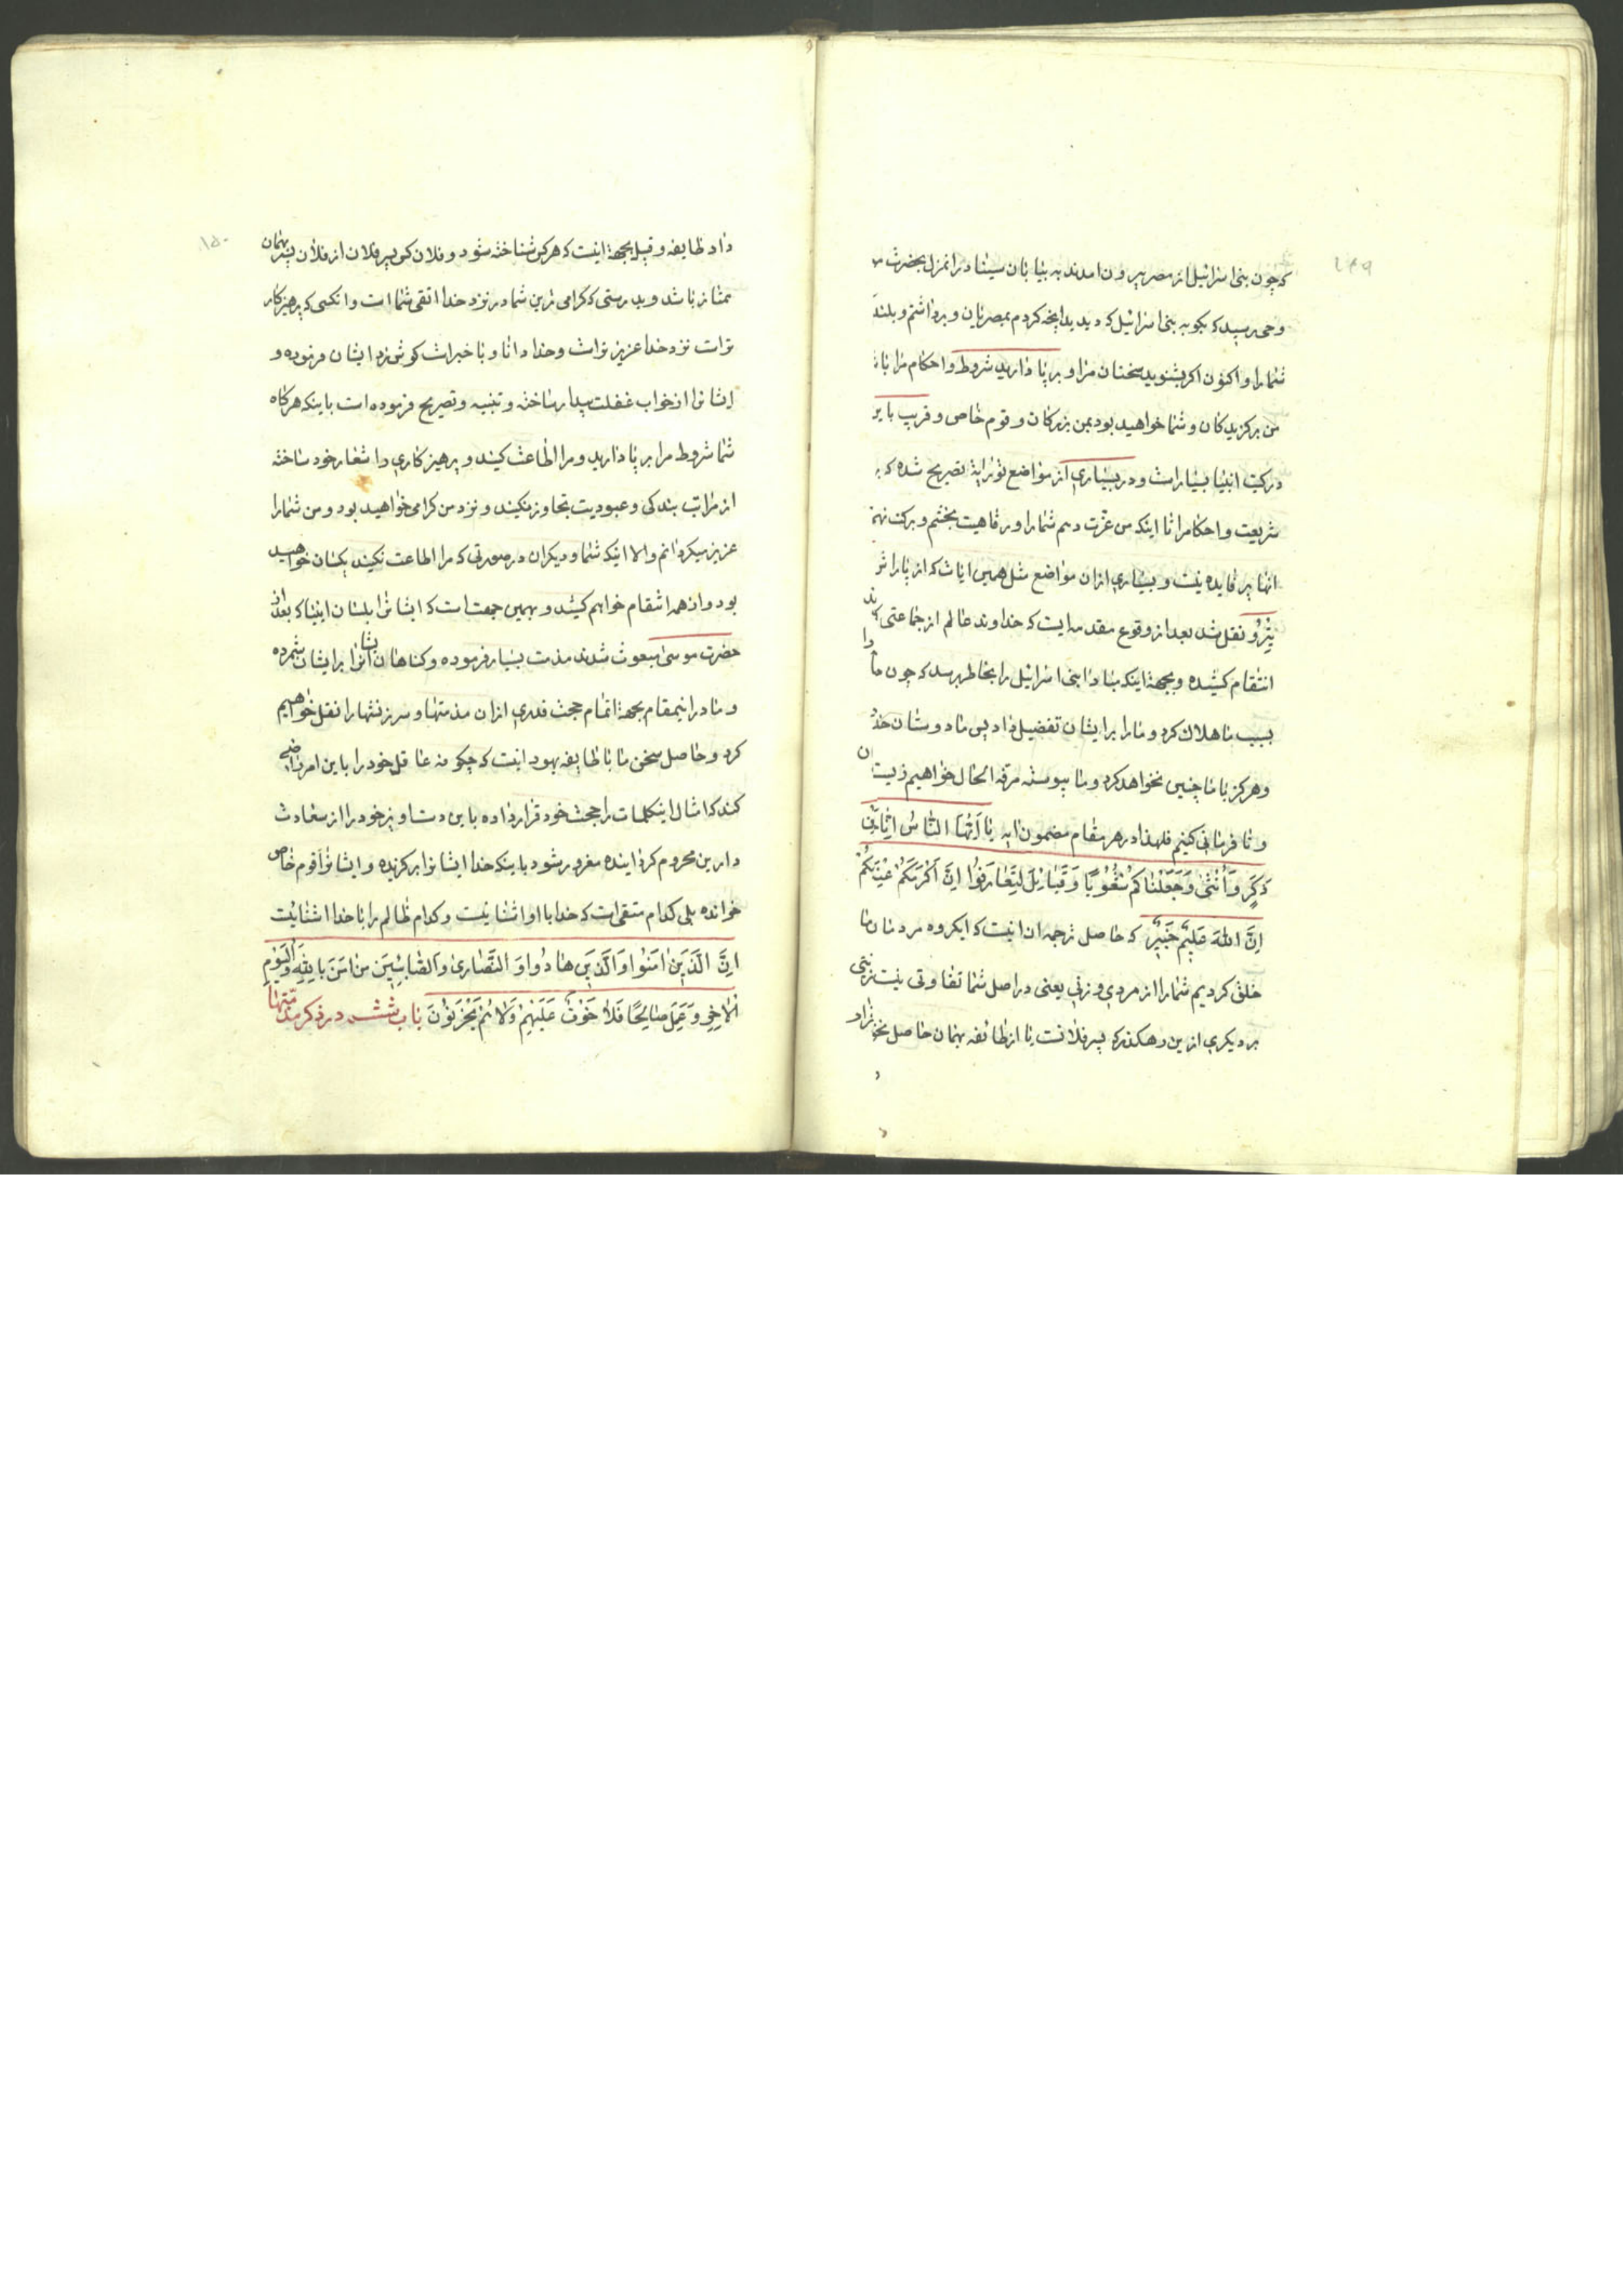 ۱۴۹
که چون بنی اسرائیل از مصر بیرون امدند به بیابان سینا در انمنزل بحضرت
وحی رسید که بکو به بنی اسرائیل که دیدید انچه کردم بمصریان و برداشتم و بلند
شما را و اکنون اکر بشنوید سخنان مرا و بر پا دارید شروط و احکام مرا
من برکزیدکان و شما خواهید بود بمن بزرکان و قوم خاص و قریب باین
در کتب انبیا بسیار است و در بسیاری از مواضع توراية تصریح شده که
شریعت و احکام مرا تا اینکه من عزت دهم شما را و رفاهیت بخشم و برکت نهم
انها بر فایده نیست و بسیاری از ان مواضع مثل همین ایات که از پاراش
یثرو نقل شد بعد از وقوع مقدمه ایست که خداوند عالم از جماعتی که
انتقام کشیده و بجهة اینکه مبادا بنی اسرائیل را بخاطر برسد که چون ما را
بسبب ما هلاک کرد و ما را بر ایشان تفضیل داد پس ما دوستان خدا
وهرکز با ما چنین نخواهد کرد و ما پیوسته مرفه الحال خواهیم زیست
و نا فرمانی کنیم فلهذا در هر مقام مضمون ایه یَا اَیُّهَا النَّاسُ
ذَکَرٍ وَاُنْثٰی وَجَعَلْنَاکُمْ شُعُوبًا وَ قَبَائِلَ لِتَعَارَفُوا اِنَّ اَکْرَمَکُمْ عِنْدَکُمْ
اِنَّ اللّٰهَ عَلِیمٌ خَبِیرٌ که حاصل ترجمه ان اینست که ایکروه مردمان ما
خلق کردیم شما را از مردی و زنی یعنی در اصل شما تفاوتی نیست
بر دیکری از این رهکذر که پسر فلانست یا از طائفه بهمان حاصل
۱۵۰
داد طایفه و قبیل بجهة اینست که هرکس شناخته شود و فلان کس پسر فلان از فلان پسر بهمان
ممتاز باشد و بدرستی که کرامی ترین شما در نزد خدا اتقی شما است و انکسی که پرهیزکار
تراست نزد خدا عزیز تراست وخدا دانا و با خبراست کوش زد ایشان فرموده و
ایشانرا از خواب غفلت بیدار ساخته و تنبیه و تصریح فرموده است باینکه هرکاه
شما شروط مرا بر پا دارید و مرا اطاعت کنید و پرهیزکاری را شعار خود ساخته
از مراتب بندکی و عبودیت تجاوز نکنید و نزد من کرامی خواهید بود و من شما را
عزیز میکردانم والا اینکه شما و دیکران در صورتی که مرا اطاعت نکنید یکسان خواهید
بود و از همه انتقام خواهم کشید و بهمین جهت است که ایشانرا بلسان انبیا که بعد از
حضرت موسی مبعوث شدند مذمت بسیار فرموده و کناهان ایشانرا بر ایشان شمرده
و ما در اینمقام بجهة اتمام حجت قدری از ان مذمتها و سرزنشها را نقل خواهیم
کرد و حاصل سخن ما با طایفه یهود اینست که چکونه عاقل خود را باین امر راضی
کند که امثال اینکلمات را حجت خود قرار داده باین دست اویز خود را از سعادت
دارین محروم کردانیده مغرور شود باینکه خدا ایشانرا برکزیده و ایشانرا قوم خاص
خوانده بلی کدام متقی است که خدا با او اشنا نیست و کدام ظالم را با خدا اشنائیست
اِنَّ الَّذِینَ اٰمَنُوا وَالَّذِینَ هَادُوا وَ النَّصَارٰی وَالصَّابِئِینَ مَنْ اٰمَنَ بِاللّٰهِ وَالْیَوْمِ
الْاٰخِرِ وَ عَمِلَ صَالِحًا فَلَا خَوْفٌ عَلَیْهِمْ وَلَا هُمْ یَحْزَنُوْنَ باب ششم در ذکر مذمتها